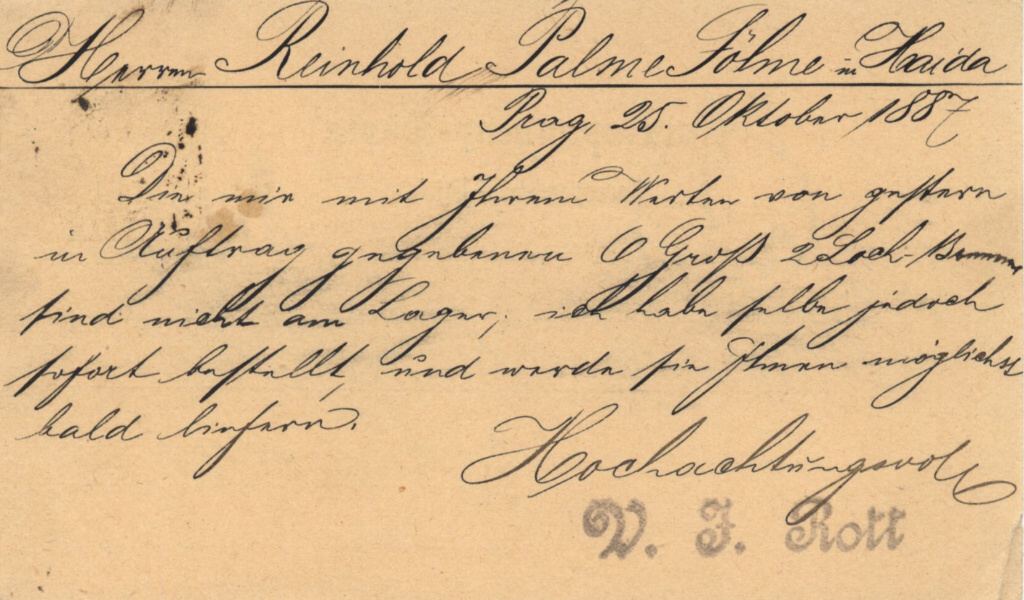 Herren Reinhold Palme Söhne in Haida
Prag, 25. Oktober 1887
Die mir mit Ihrem Werten von gestern
in Auftrag gegebenen 6 Groß 2 Loch-
sind nicht am Lager, ich habe selbe jedoch
sofort bestellt, und werde sie Ihnen möglichst
bald liefern.
Hochachtungsvoll
V. J. Rott